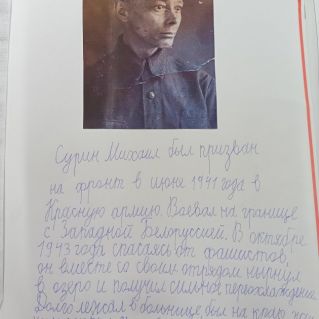 Сурин Михаил был призван
на фронт в июне 1941 года в
Красную армию. Воевал на границе
с Западной Белоруссией. В октябре
1943 года спасаясь от фашистов,
он вместе со своим отрядом нырнул
в озеро и получил сильное переохлаждение
Долго лежал в больнице был на краю